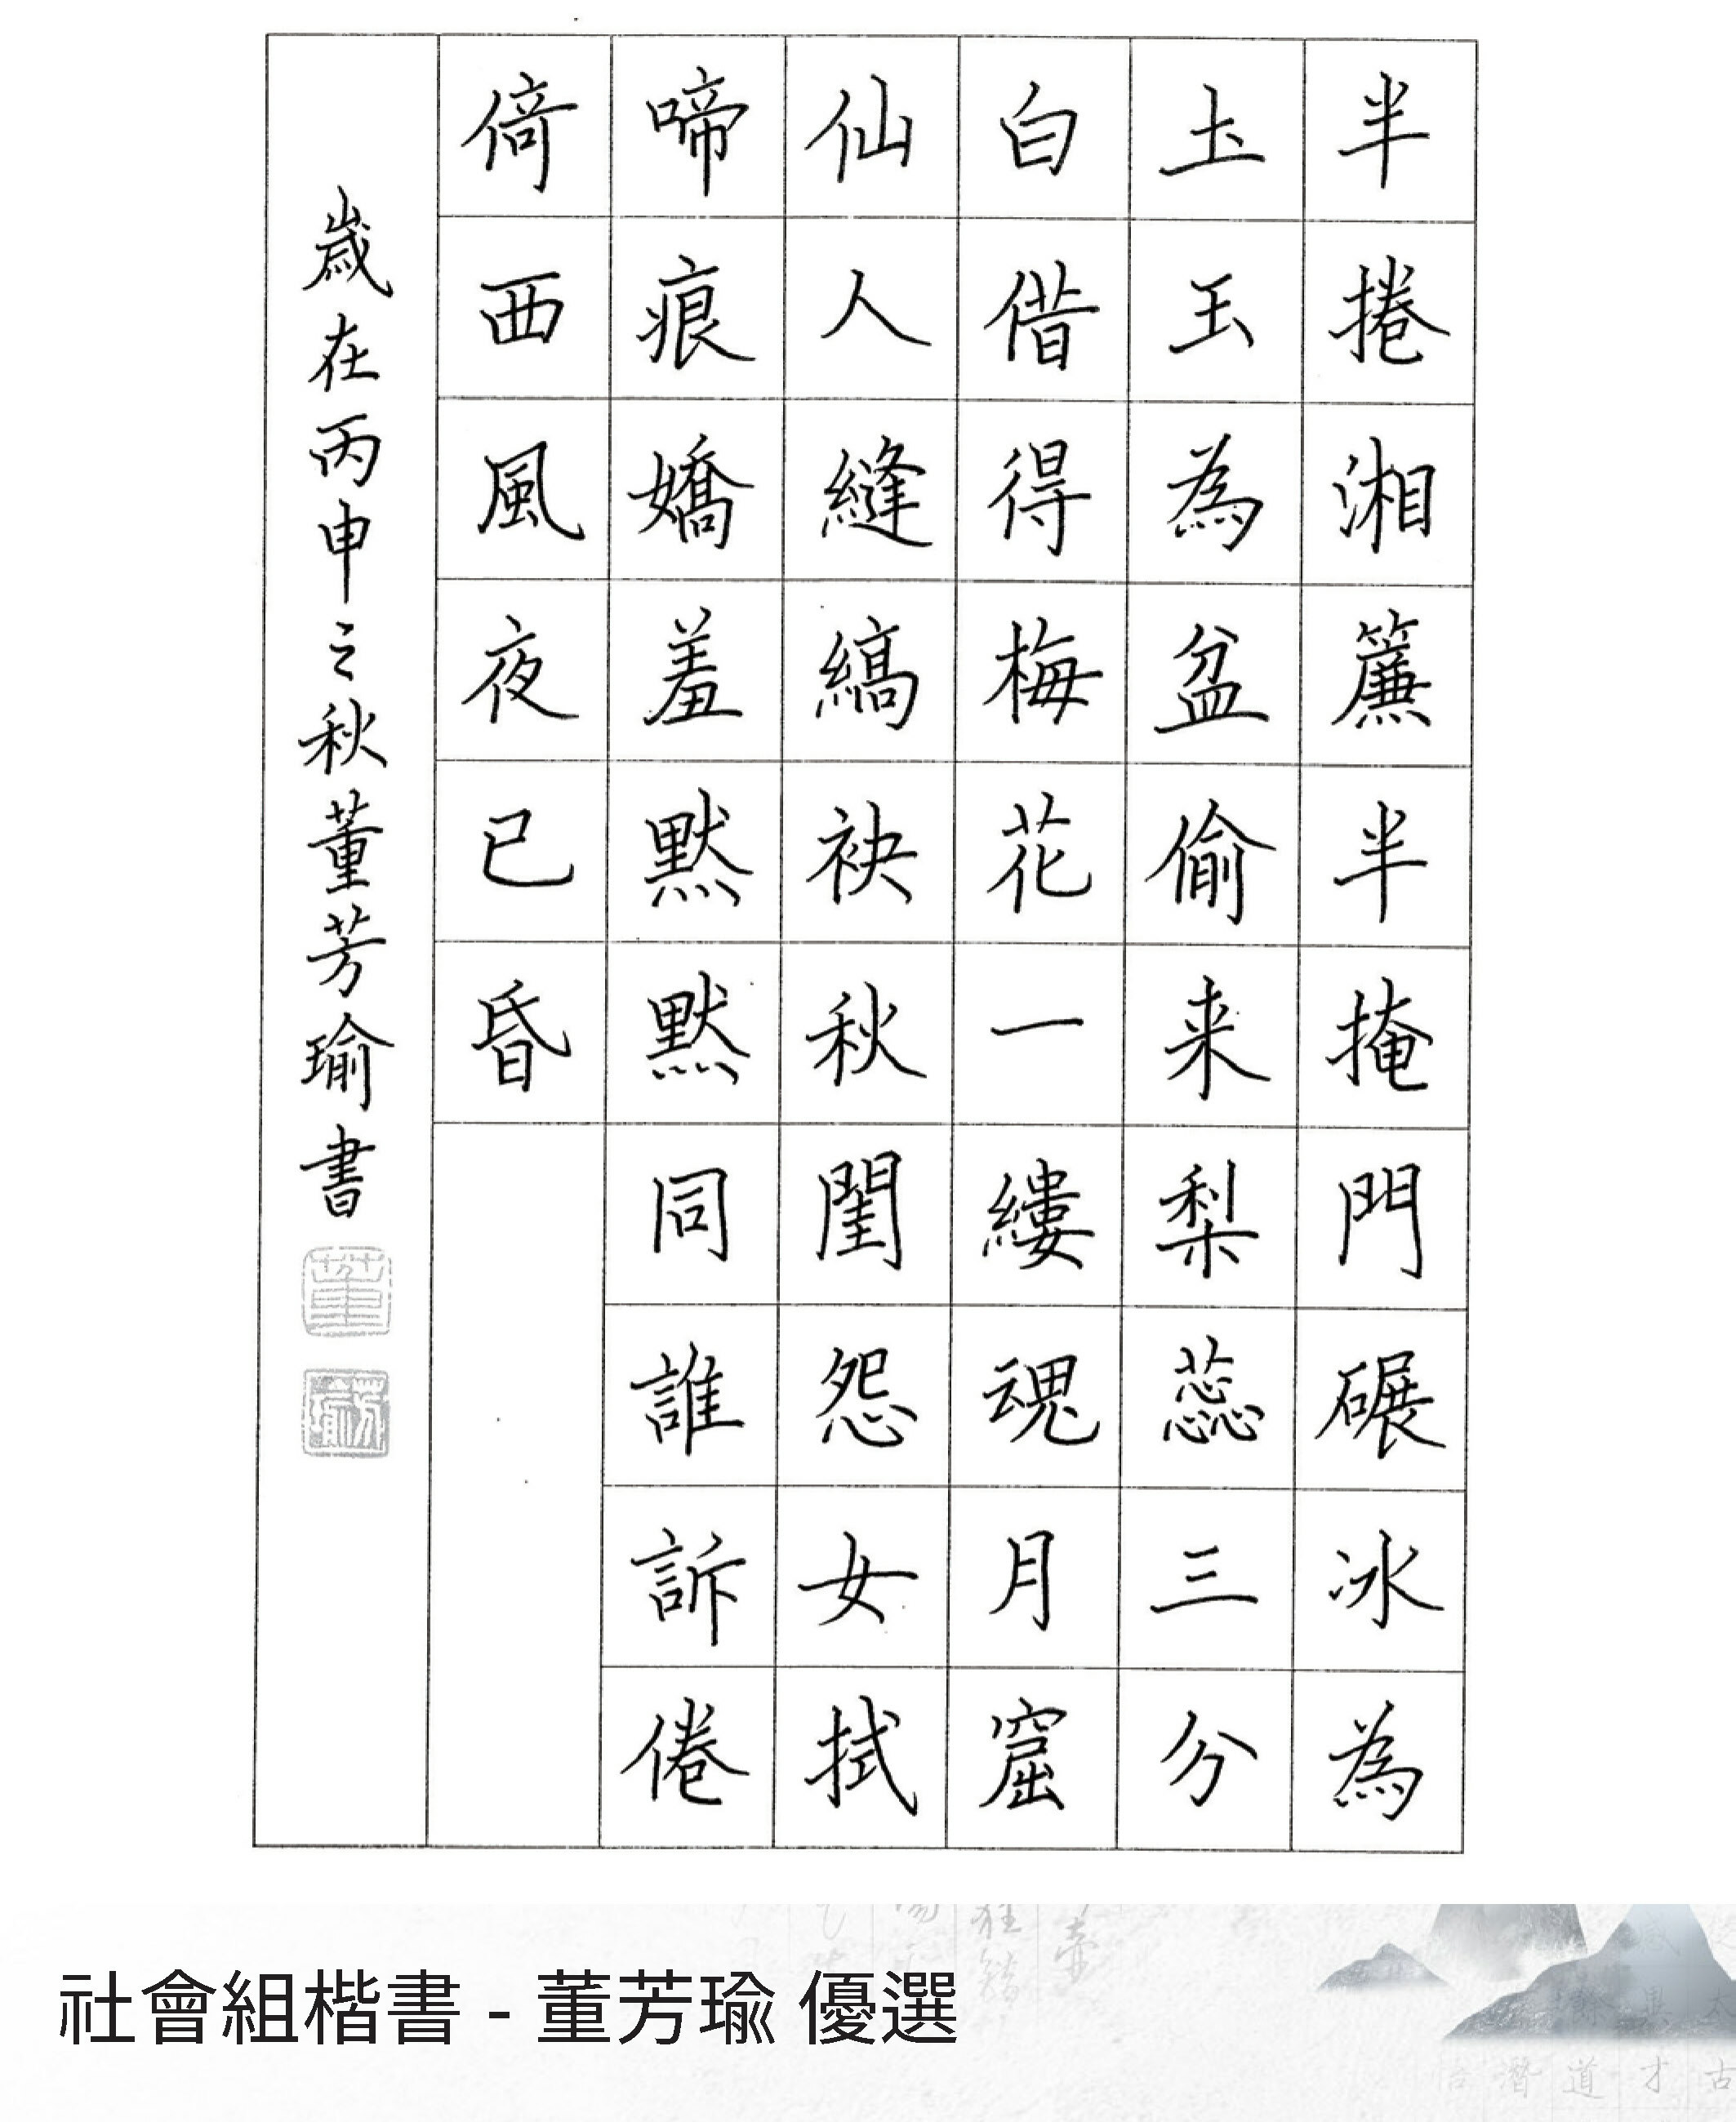 半捲湘簾半掩門碾冰為
土玉為盆偷来梨蕊三分
白借得梅花一縷魂月窟
仙人縫縞袂秋閨怨女拭
啼痕嬌羞默默同誰訴倦
倚西風夜已昏
歲在丙申之秋董芳瑜書
董
芳瑜
社會組楷書 - 董芳瑜 優選